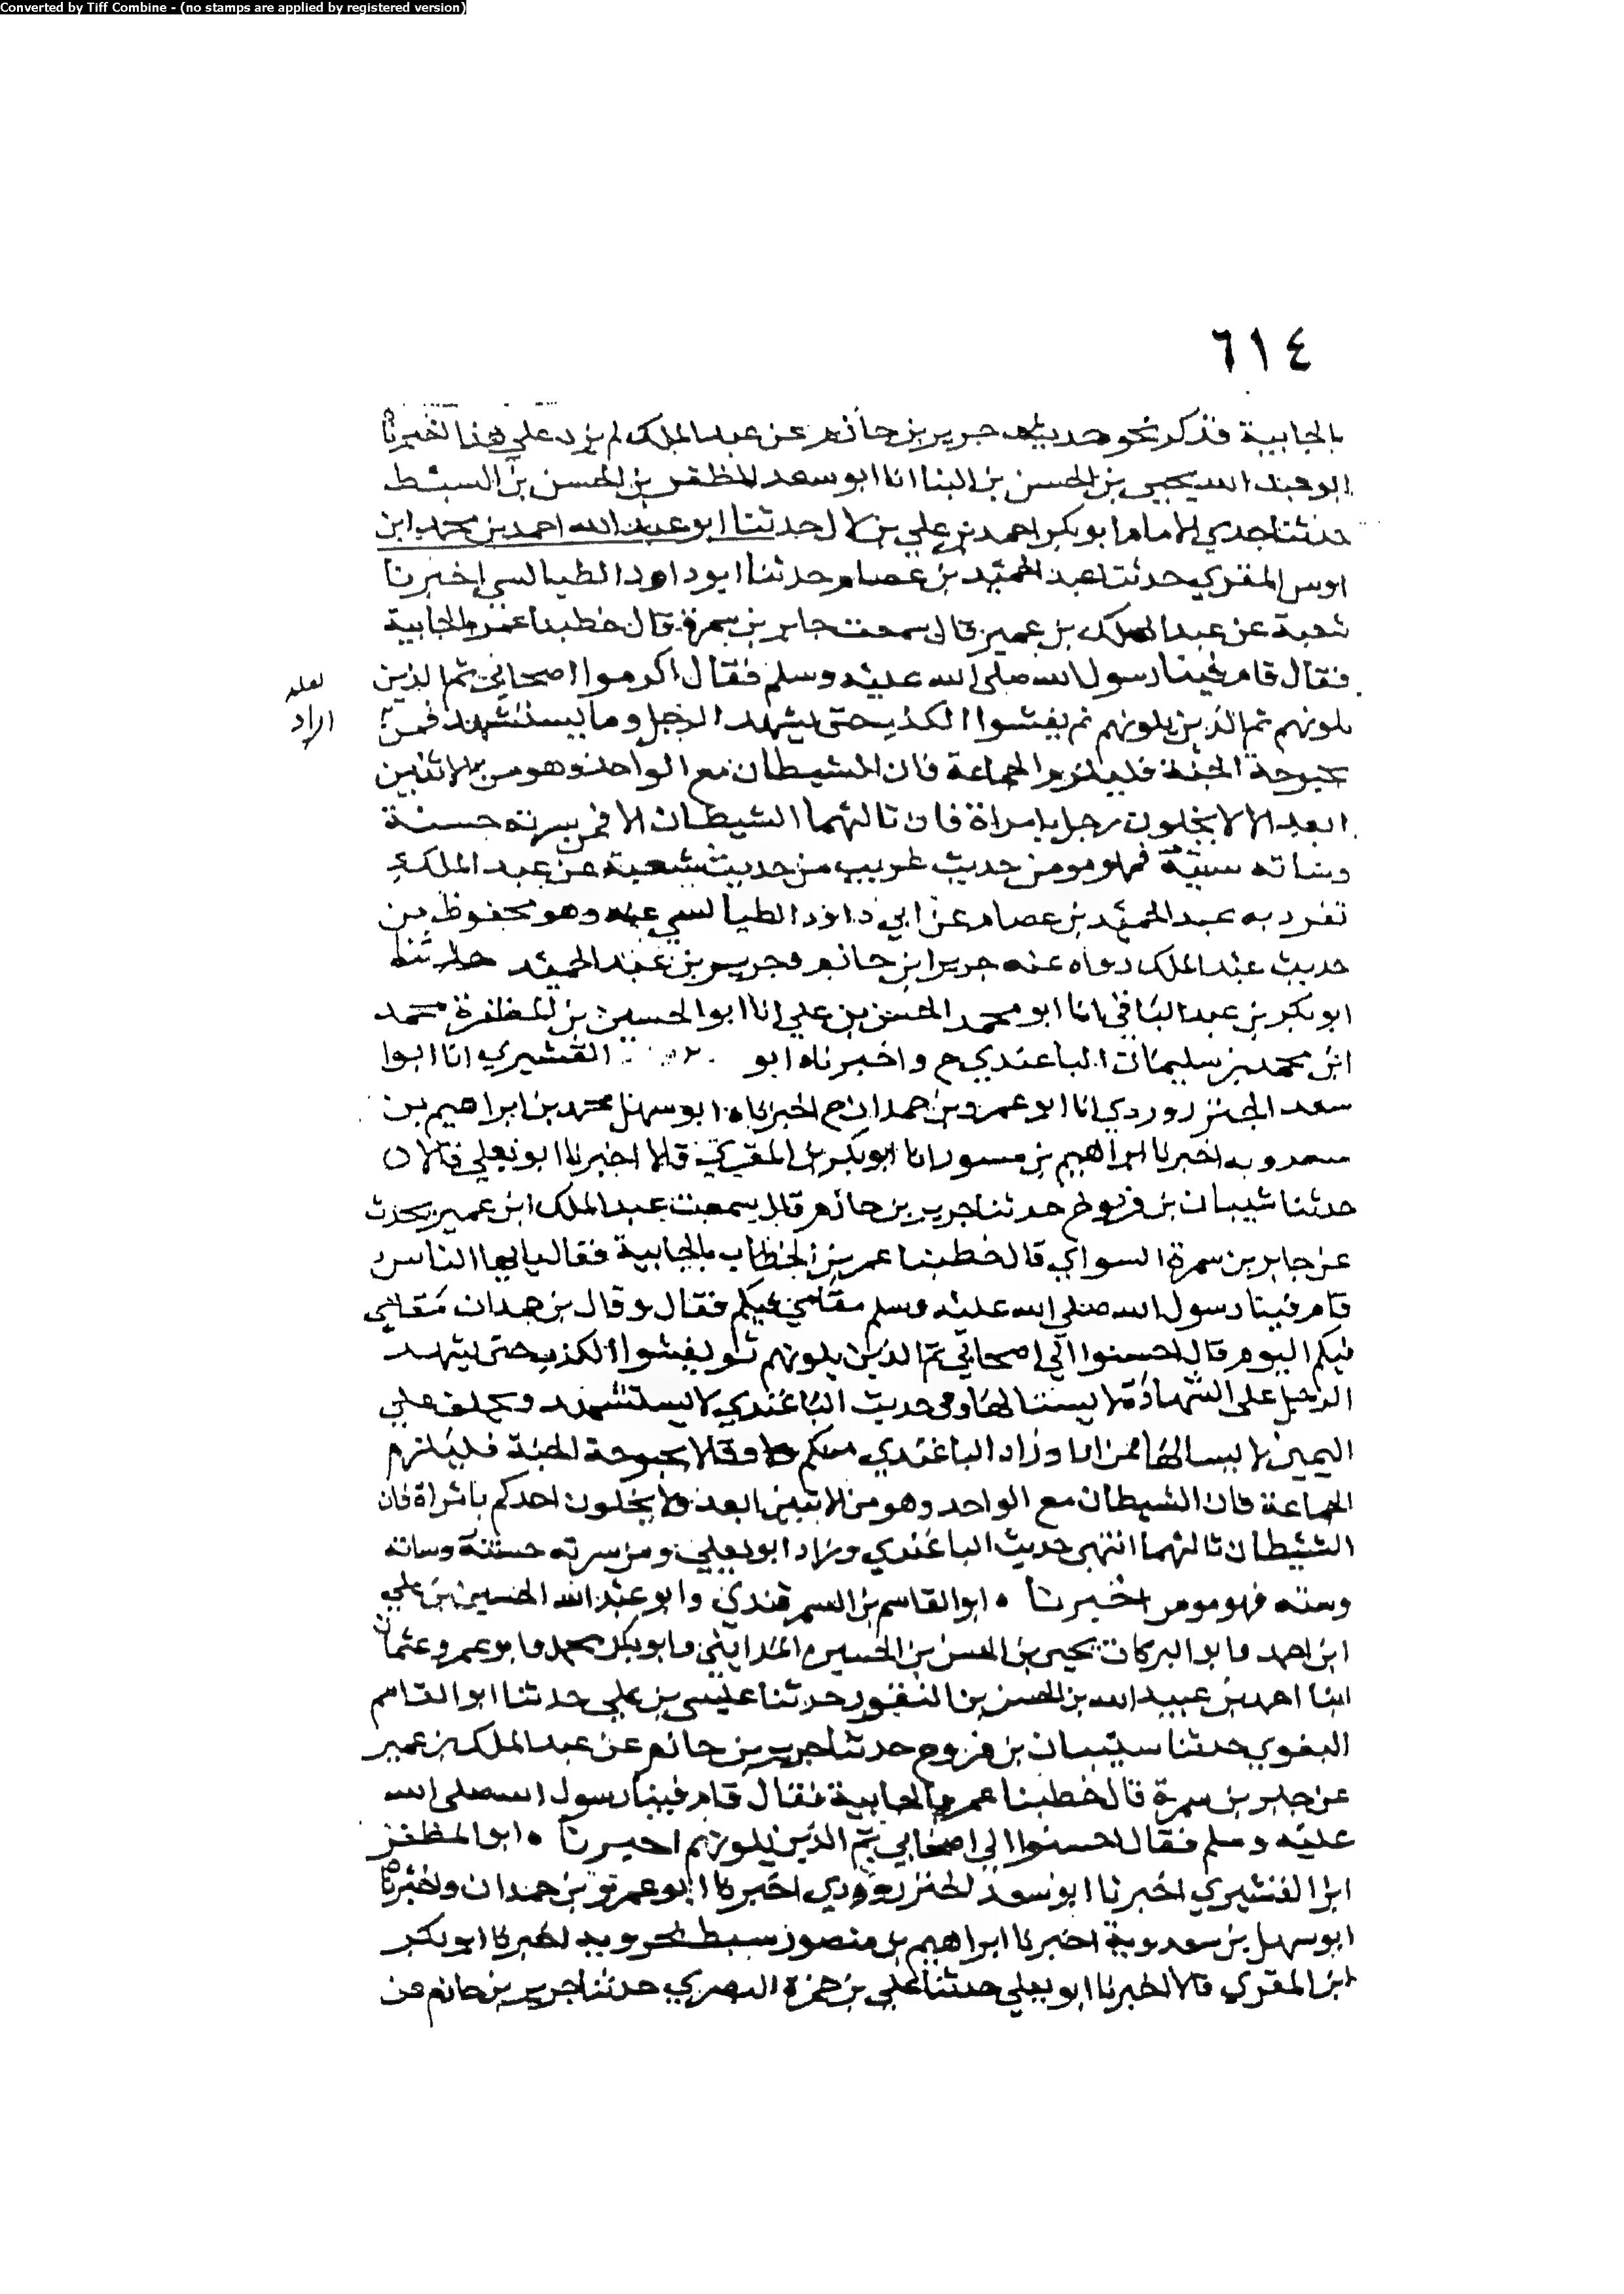 Converted by Tiff Combine - (no stamps are applied by registered version)
٦١٤
بالجابية فذكر نحو حديث جرير بن حازم عن عبد الملك لم يزد علي هذا اخبرنا
ابو عبد الله يحيى بن الحسن بن البنا انا ابو سعد المظفر بن الحسن بن السبط
حدثنا جدي الامام ابو بكر احمد بن علي بن لال حدثنا ابو عبد الله احمد بن محمد ابن
اوس المقري حدثنا عبد الحميد بن عصام حدثنا ابو داود الطيالسي اخبرنا
شعبة عن عبد الملك بن عمير قال سمعت جابر بن سمرة قال خطبنا عمر بالجابية
فقال قام فينا رسول الله صلى الله عليه وسلم فقال اكرموا اصحابي ثم الذين
يلونهم ثم الذين يلونهم ثم يفشوا الكذب حتى يشهد الرجل وما يستشهد فمن
لعله
اراد
بحبوحة الجنة فليلزم الجماعة فان الشيطان مع الواحد وهو من الاثنين
ابعد الا لا يخلون رجل بامراة فان ثالثهما الشيطان الا فمن سرته حسنة
وساته سيئة فهو مومن حديث غريب من حديث شعبة عن عبد الملك
تفرد به عبد الحميد بن عصام عن ابي داود الطيالسي عنه وهو محفوظ من
حديث عبد الملك رواه عنه جرير ابن حازم وجرير بن عبد الحميد حدثنا
ابو بكر بن عبد الباقي انا ابو محمد الحسن بن علي انا ابو الحسين بن المظفرة محمد
ابن محمد بن سليمان الباغندي ح واخبرناه ابو القشيري انا ابوا
سعد الجنزروردي انا ابو عمرو بن حمدان ح اخبرناه ابو سهل محمد بن ابراهيم بن
سعدويه اخبرنا ابراهيم بن مسور انا ابو بكر بن المقري قالا اخبرنا ابو يعلي قالا ن
حدثنا شيبان بن فروخ حدثنا جرير بن حازم قال سمعت عبد الملك ابن عمير يحدث
عن جابر بن سمرة السواي قال خطبنا عمر بن الخطاب بالجابية فقال يا ايها الناس
قام فينا رسول الله صلى الله عليه وسلم مقامي فيكم فقال وقال بن حمدان مقامي
فيكم اليوم قال احسنوا الي اصحابي ثم الذين يلونهم ثم يفشوا الكذب حتى يشهد
الرجل على الشهادة لا يسئالها وفي حديث الباغندي لا يستشهد ويحلف علي
اليمين لا يسالها فمن اراد وزاد الباغندي منكم وقالا بحبوحة الجنة فليلزم
الجماعة فان الشيطان مع الواحد وهو من الاثنين ابعد ولا يخلون احدكم بامراة فان
الشيطان ثالثهما انتهى حديث الباغندي وزاد ابو يعلي ومن سرته حسنة وساته
وسته فهو مومن اخبرنا ه ابو القاسم بن السمرقندي وابو عبد الله الحسين بن علي
ابن احمد وابو البركات يحيى بن الحسن بن الحسين المدايني وابو بكر محمد وابو عمرو عثمان
ابنا احمد بن عبيد الله بن الحسن بن النقور حدثنا عيسى بن علي حدثنا ابو القاسم
البغوي حدثنا شيبان بن فروخ حدثنا جرير بن حازم عن عبد الملك بن عمير
عن جابر بن سمرة قال خطبنا عمر بالجابية فقال قام فينا رسول الله صلى الله
عليه وسلم فقال احسنوا الى اصحابي ثم الذين يلونهم اخبرنا ه ابو المظفر
ابن القشيري اخبرنا ابو سعد الجنزرودي اخبرنا ابو عمرو بن حمدان واخبرناه
ابو سهل بن سعدوية اخبرنا ابراهيم بن منصور سبط بحرويه اخبرنا ابو بكر
ابن المقري قالا اخبرنا ابو يعلي حدثنا علي بن حمزة البصري حدثنا جرير بن حازم عن